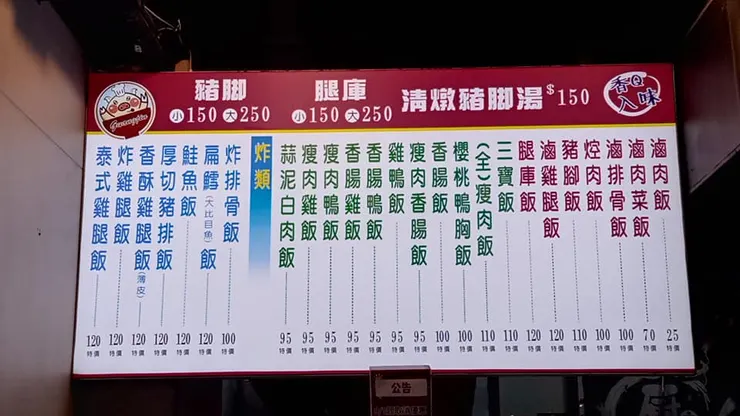 豬脚
小150 大250
腿庫
小150 大250
清燉豬脚湯 $150
香Q入味
滷肉飯 25 特價
滷肉菜飯 70 特價
滷排骨飯 100 特價
焢肉飯 100 特價
豬腳飯 110 特價
滷雞腿飯 120 特價
腿庫飯 120 特價
三寶飯 110 特價
(全)瘦肉飯 110 特價
櫻桃鴨胸飯 100 特價
香腸飯 100 特價
瘦肉香腸飯 95 特價
雞鴨飯 95 特價
香腸鴨飯 95 特價
香腸雞飯 95 特價
瘦肉鴨飯 95 特價
瘦肉雞飯 95 特價
蒜泥白肉飯 95 特價
炸類
炸排骨飯 100 特價
扁鱈(大比目魚)飯 120 特價
鮭魚飯 120 特價
厚切豬排飯 120 特價
香酥雞腿飯(薄皮) 120 特價
炸雞腿飯 120 特價
泰式雞腿飯 120 特價
公告